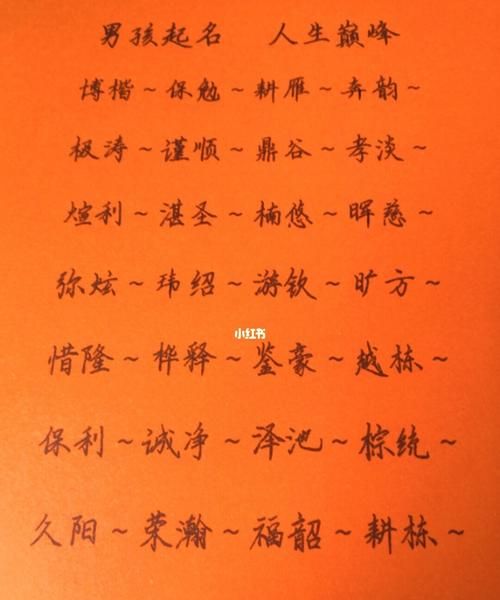 男孩起名 人生巅峰
博楷~保勉~耕雁~奔韵~
极涛~谨顺~鼎谷~孝淡~
煊利~湛圣~楠悠~晖慈~
弥炫~玮绍~游钦~旷方~
小红书
惜隆~桦释~鉴豪~越栋~
保利~诚净~泽池~棕统~
久阳~荣瀚~福韶~耕栋~